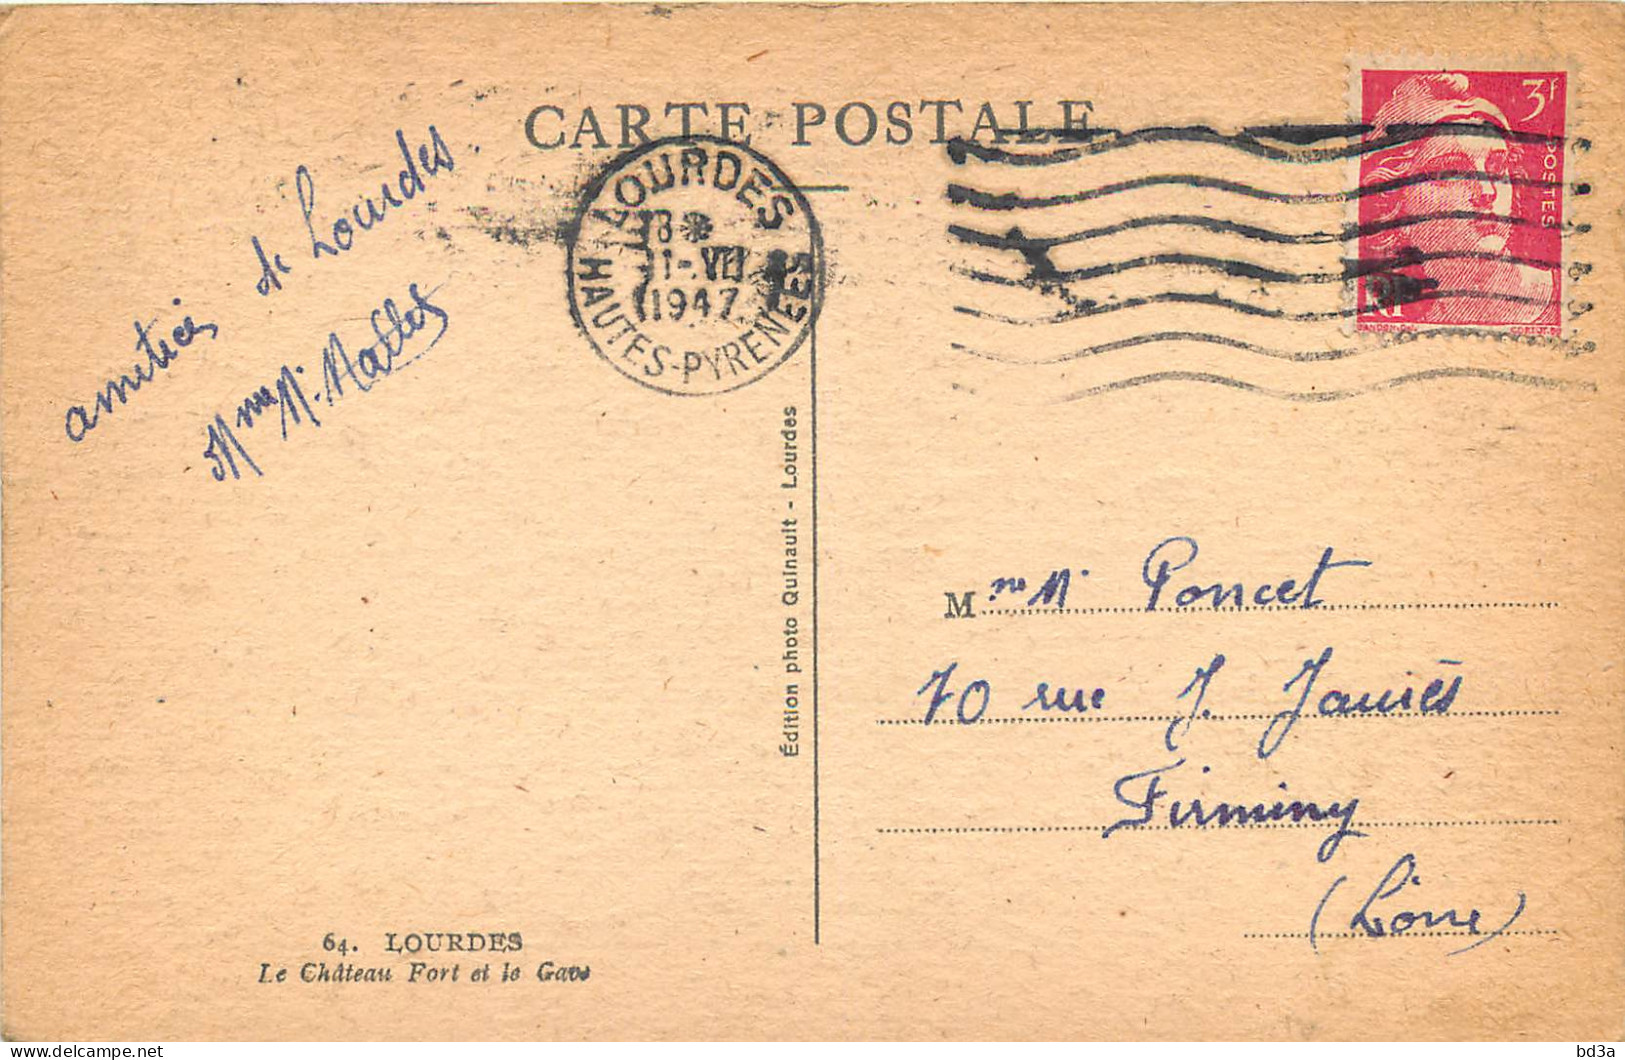 CARTE POSTALE
amitiés de Lourdes
Mme M.
LOURDES
18
1947
HAUTES-PYRENEES
3f
POSTES
RF
GANDON
Édition photo Quinault - Lourdes
Mme M. Poncet
70 rue J.
Firminy
(Loire)
64. LOURDES
Le Château Fort et le Gave
bd3a